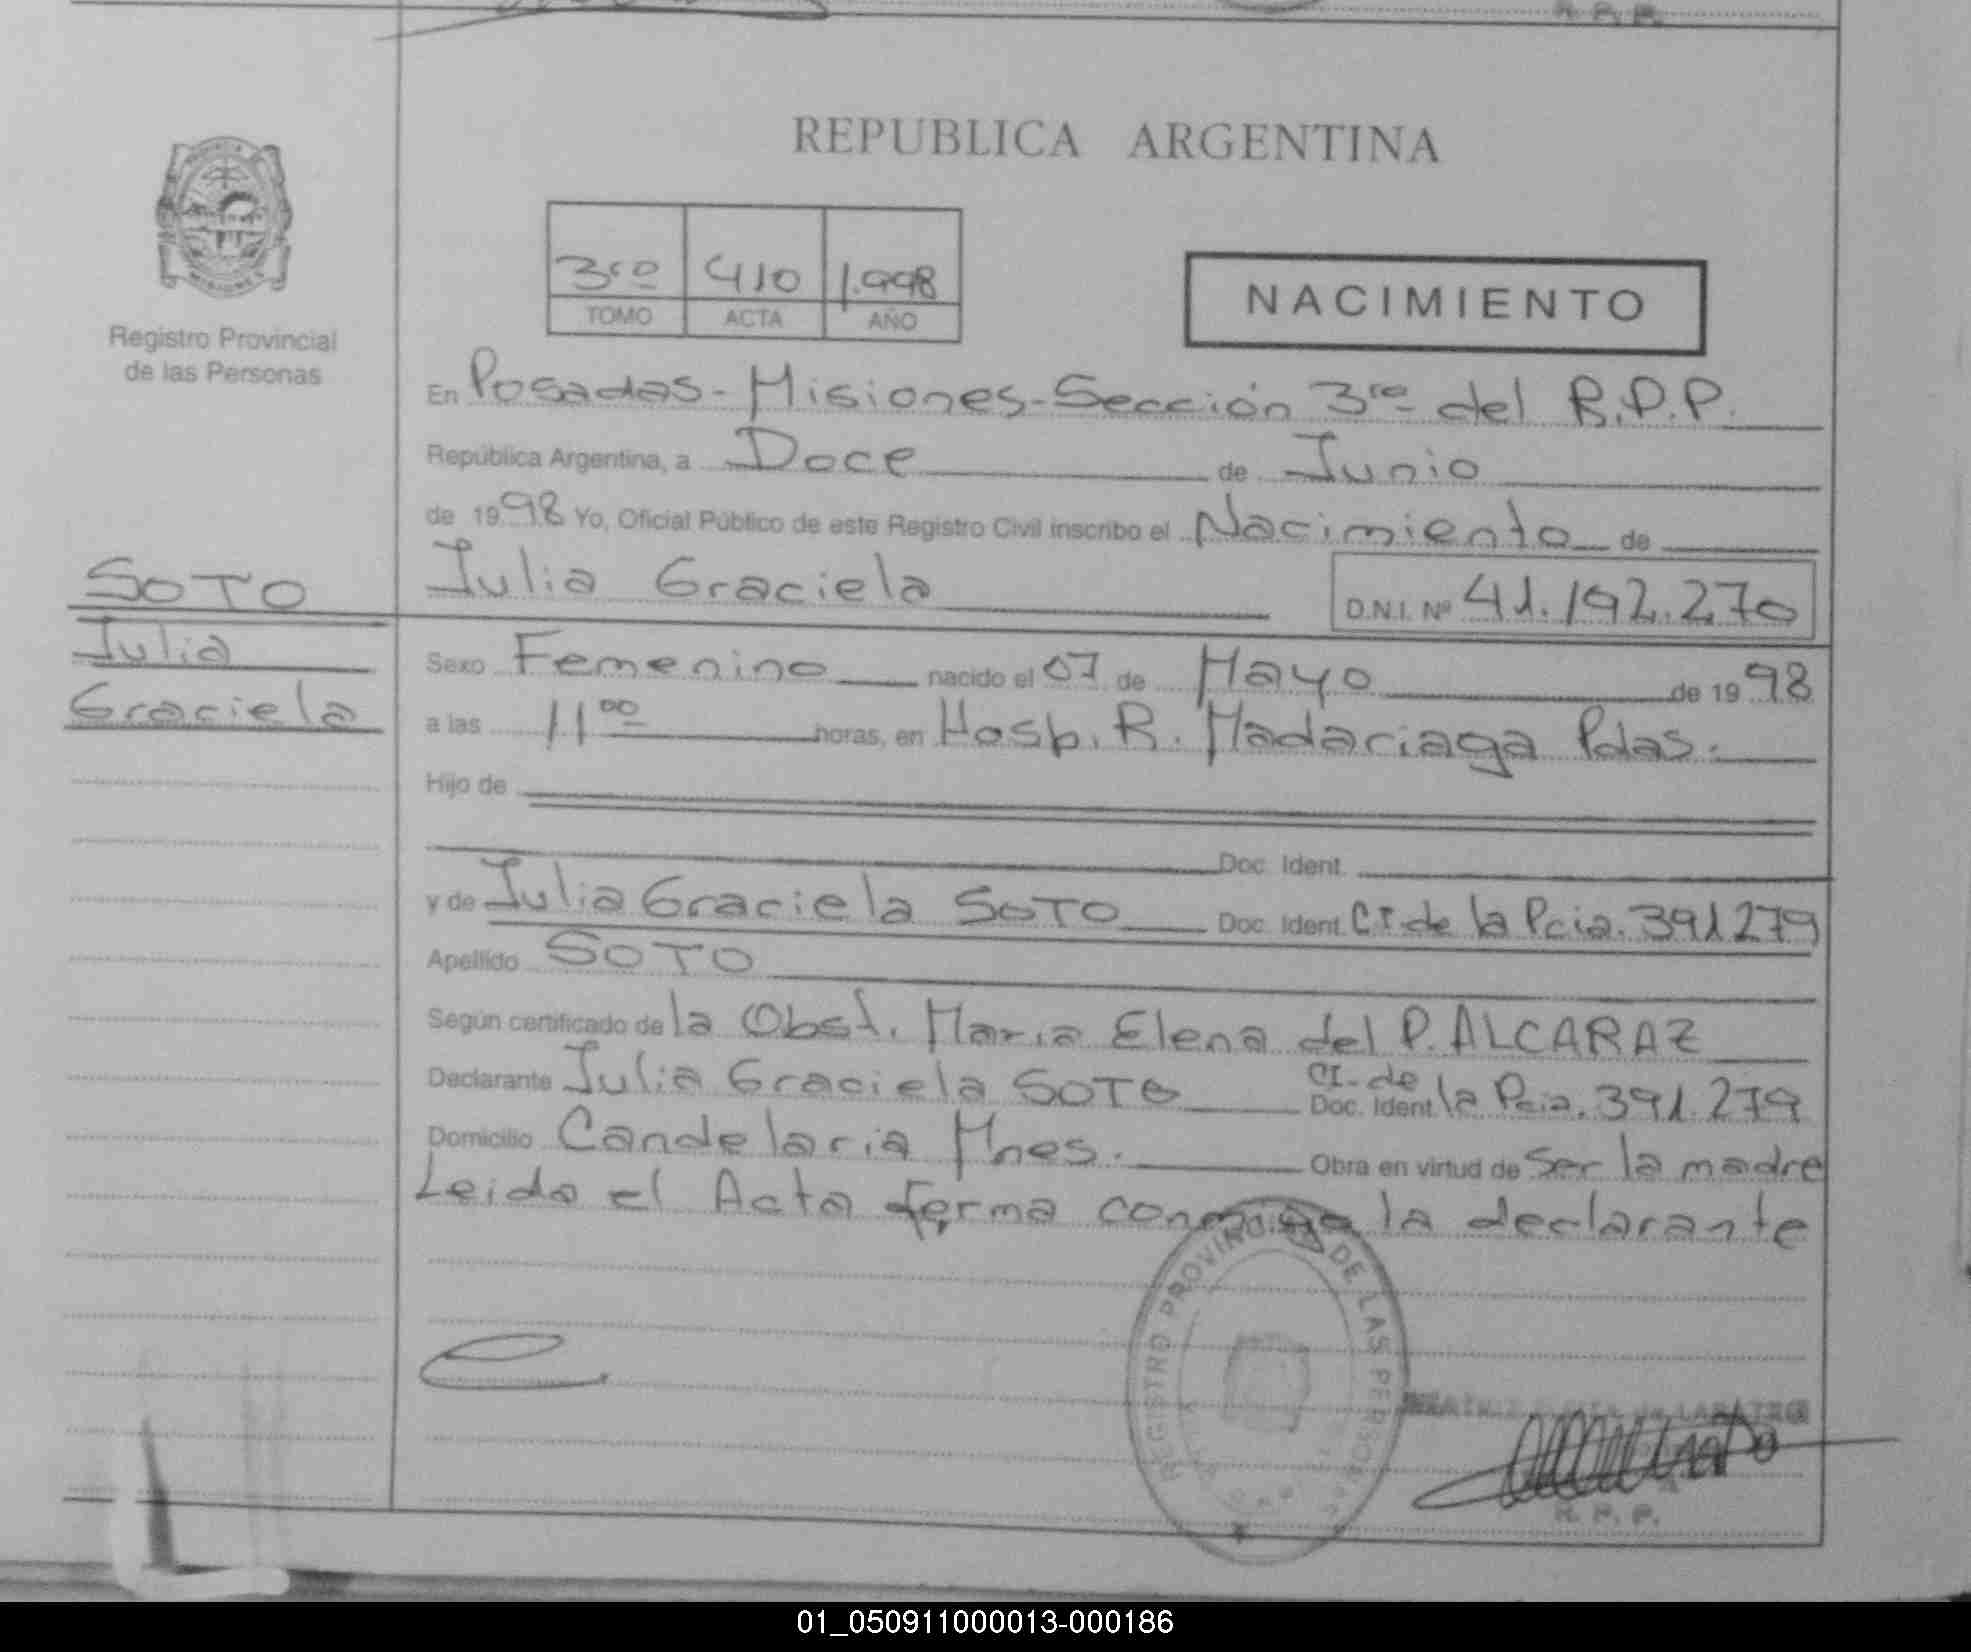 R. P. P.
REPUBLICA ARGENTINA
PROVINCIA
MISIONES
Registro Provincial
de las Personas
3ro 410 1.998
TOMO ACTA AÑO
NACIMIENTO
En Posadas - Misiones - Sección 3ra del R.P.P.
República Argentina, a Doce de Junio
de 1998 Yo, Oficial Público de este Registro Civil inscribo el Nacimiento de
SOTO
Julia
Graciela
Julia Graciela D.N.I. Nº 41.192.270
Sexo Femenino nacido el 07 de Mayo de 1998
a las 11 00 horas, en Hosp. R. Madariaga Pdas.
Hijo de
Doc. Ident.
y de Julia Graciela SOTO Doc. Ident. C.I. de la Pcia. 391279
Apellido SOTO
Según certificado de la Obst. Maria Elena del P. ALCARAZ
Declarante Julia Graciela SOTO Doc. Ident. CI. de la Pcia. 391.279
Domicilio Candelaria Mnes. Obra en virtud de Ser la madre
Leida el Acta ferma conmigo la declarante
REGISTRO PROVINCIAL DE LAS PERSONAS
R. P. P.
01_050911000013-000186